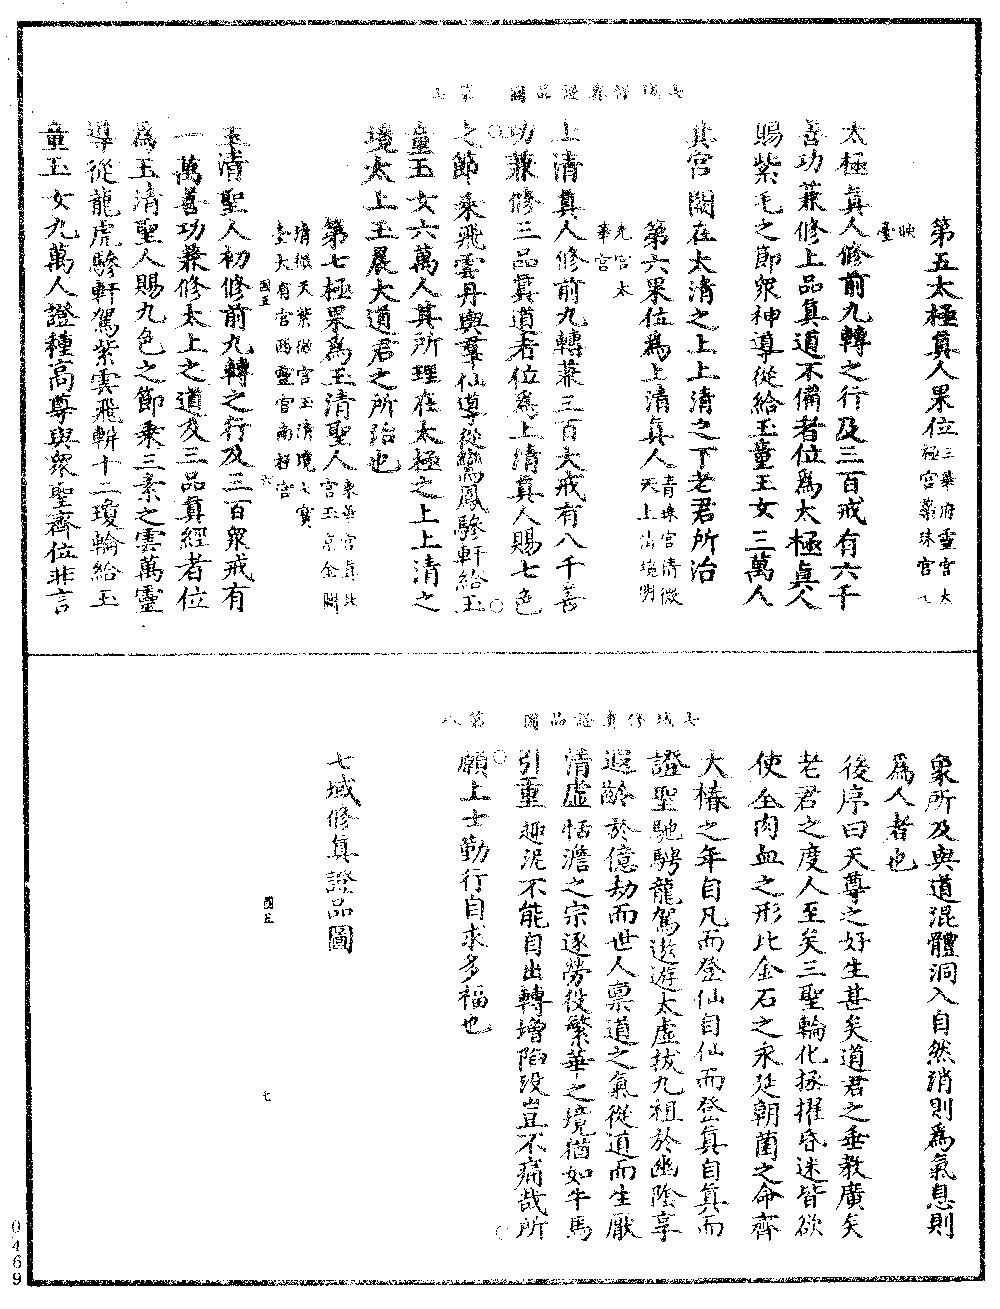 七域修真證品圖　第七
第五太極真人果位三華府靈宮太極宮蘂珠宮七
映靈
太極真人修前九轉之行及三百戒有六千
善功兼修上品真道不備者位為太極真人
賜紫毛之節衆神導從給玉童玉女三萬人
其宮闕在太清之上上清之下老君所治
第六果位為上清真人青珠宮清微天上清境明
九宮太華宮
上清真人修前九轉兼三百大戒有八千善
功兼修三品真道者位為上清真人賜七色
之節乘飛雲丹輿羣仙導從鸞鳳驂軒給玉
童玉女六萬人其所理在太極之上上清之
境太上玉晨大道君之所治也
第七極果為玉清聖人東華宮貞北宮玉京金闕
清微天紫微宮玉清境七寶
臺大有宮西靈宮南極宮
國五　六
玉清聖人初修前九轉之行及三百衆戒有
一萬善功兼修太上之道及三品真經者位
為玉清聖人賜九色之節乘三素之雲萬靈
導從龍虎驂軒駕紫雲飛軿十二瓊輪給玉
童玉女九萬人證種高尊與衆聖齊位非言
七域修真證品圖　第八
象所及與道混體洞入自然消則為氣息則
為人者也
後序曰天尊之好生甚矣道君之垂教廣矣
老君之度人至矣三聖輪化拯擢昏迷皆欲
使全肉血之形比金石之永延朝菌之命齊
大椿之年自凡而登仙自仙而登真自真而
證聖馳騁龍駕遨遊太虛拔九祖於幽陰享
遐齡於億劫而世人稟道之氣從道而生厭
清虛恬澹之宗逐勞役繁華之境猶如牛馬
引重趣泥不能自出轉增陷没豈不痛哉所
願上士勤行自求多福也
七域修真證品圖
國五　七
0469